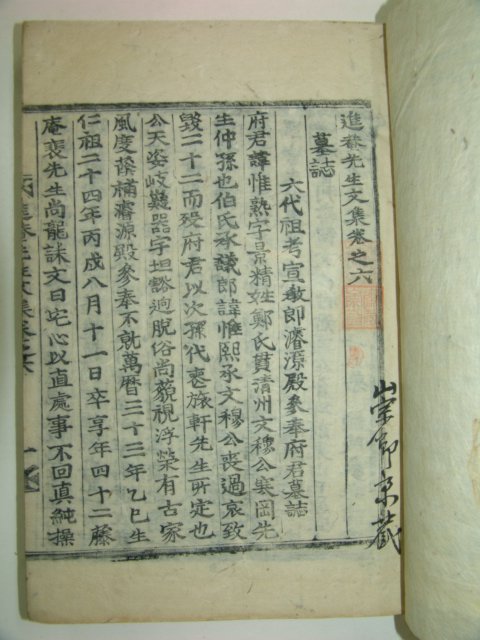 進菴先生文集卷之六
墓誌
六代祖考宣敎郞濬源殿參奉府君墓誌
府君諱惟熟字景精姓鄭氏貫淸州文穆公寒岡先
生仲孫也伯氏承議郞諱惟熙承文穆公喪過哀致
毁二十二而歿府君以次孫代喪旅軒先生所定也
公天姿岐嶷器宇坦豁逈脫俗尙藐視浮榮有古家
風度蔭補濬源殿參奉不就萬曆三十三年乙巳生
仁祖二十四年丙戌八月十一日卒享年四十二藤
庵裵先生尙龍誄文曰宅心以直處事不回眞純操